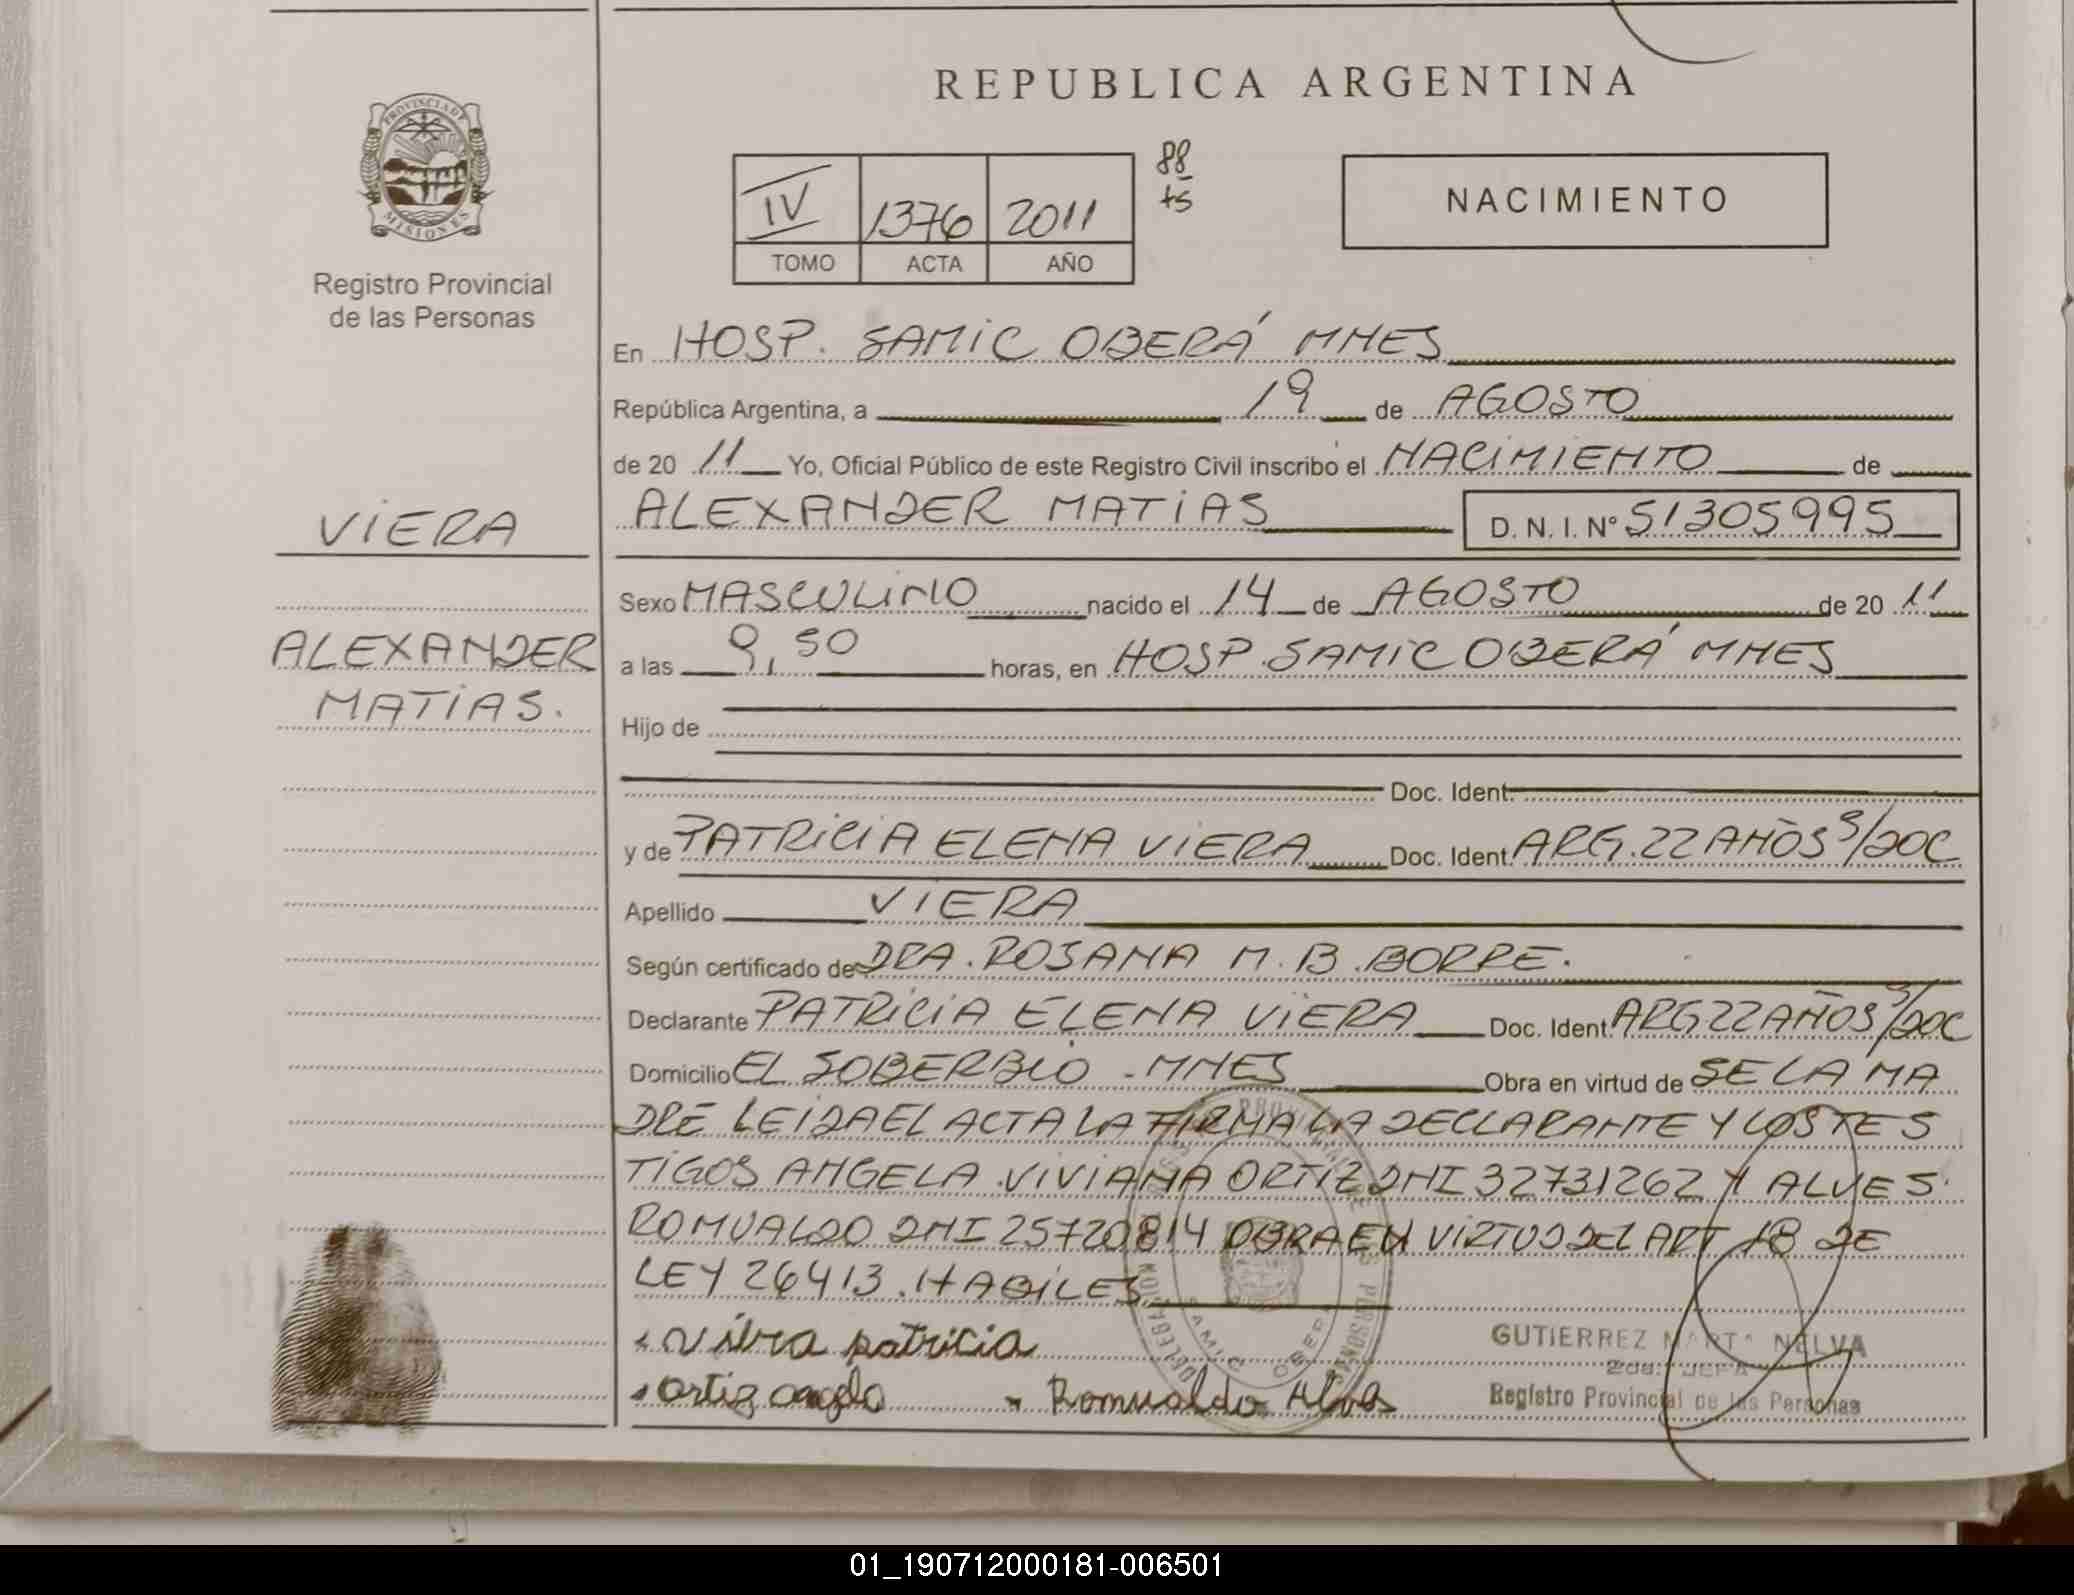 REPUBLICA ARGENTINA
88
ts
IV 1376 2011
TOMO ACTA AÑO
NACIMIENTO
PROVINCIA DE
MISIONES
Registro Provincial
de las Personas
VIERA
ALEXANDER
MATIAS.
En HOSP. SAMIC OBERÁ MNES
República Argentina, a 19 de AGOSTO
de 20 11 Yo, Oficial Público de este Registro Civil inscribo el NACIMIENTO de
ALEXANDER MATIAS D. N. I. Nº 51305995
Sexo MASCULINO nacido el 14 de AGOSTO de 20 11
a las 9,50 horas, en HOSP. SAMIC OBERÁ MNES
Hijo de
Doc. Ident.
y de PATRICIA ELENA VIERA Doc. Ident. ARG. 22 AÑOS S/DOC
Apellido VIERA
Según certificado de DRA. ROSANA M. B. BORRE.
Declarante PATRICIA ELENA VIERA Doc. Ident. ARG 22 AÑOS S/DOC
Domicilio EL SOBERBIO - MNES Obra en virtud de SE LA MA
DRE LEIDA EL ACTA LA FIRMA LA DECLARANTE Y LOS TES
TIGOS ANGELA VIVIANA ORTIZ DNI 32731262 Y ALVES
ROMUALDO DNI 25720814 OBRA EN VIRTUD DEL ART 18 DE
LEY 26413. HABILES
Viera patricia
ortiz angela Romualdo Alves
GUTIERREZ MARTA NELVA
2da. JEFA
Registro Provincial de las Personas
01_190712000181-006501